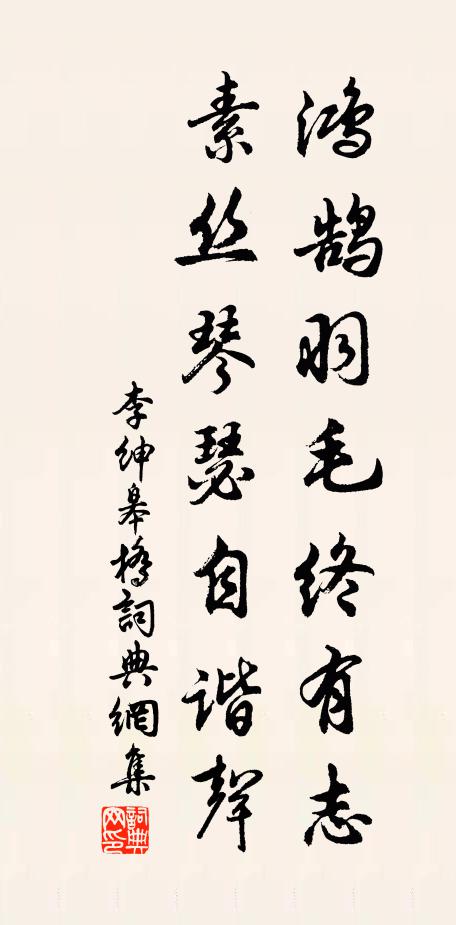 鸿鹄羽毛终有志
素丝琴瑟自谐聲
李绅皋橋詞典網集
詞典网印